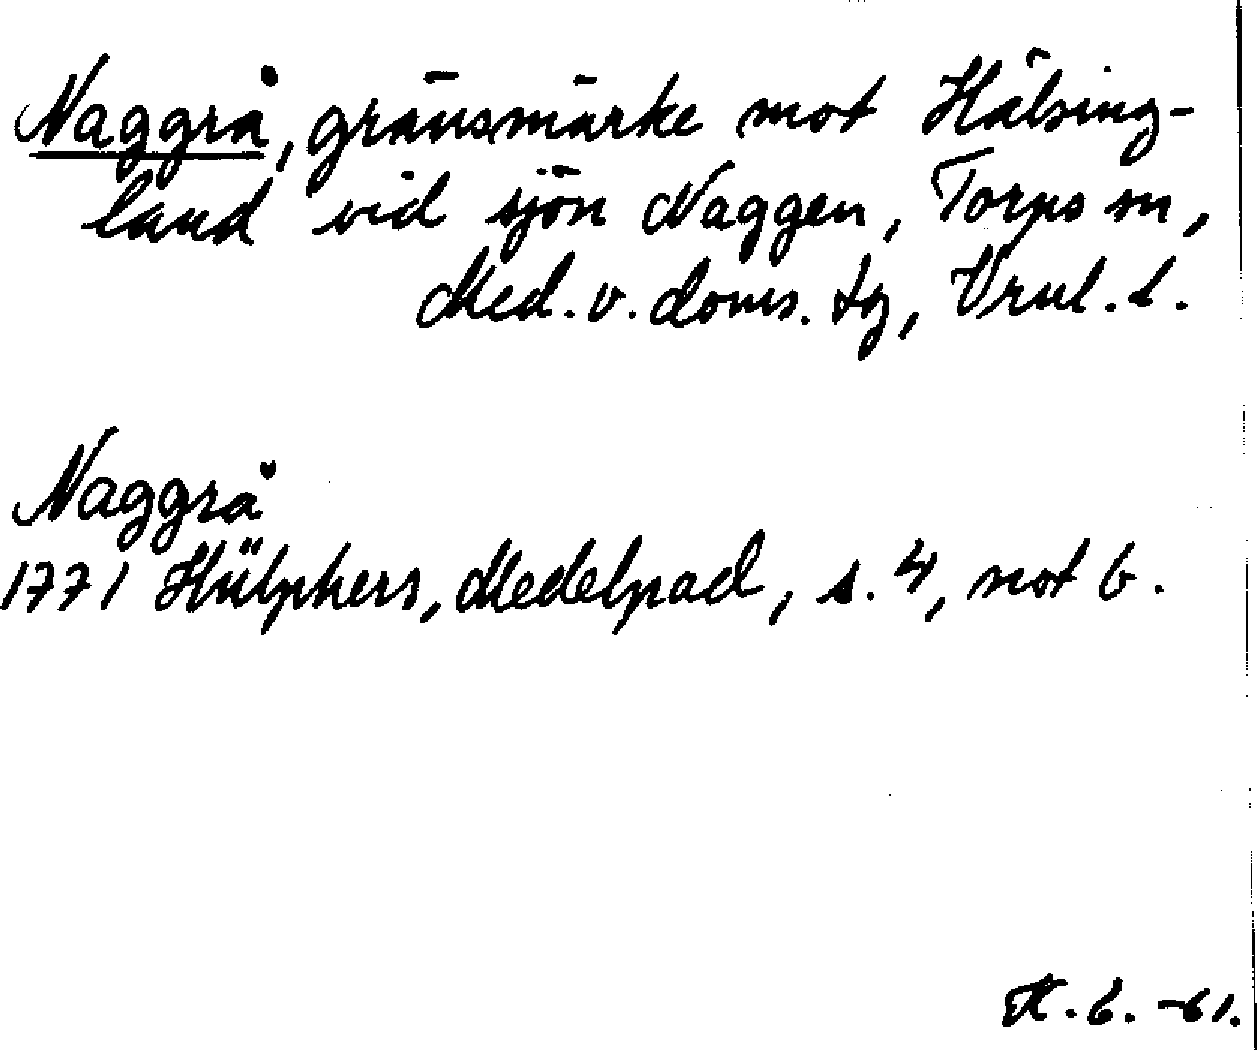 Naggrå, gränsmärke mot Hälsing-
land vid sjön Naggen, Torps sn,
Med. v. doms. tg, Vrnl. l.
Naggrå
1771 Hülphers, Medelpad, s. 4, not b.
H. G. -61.